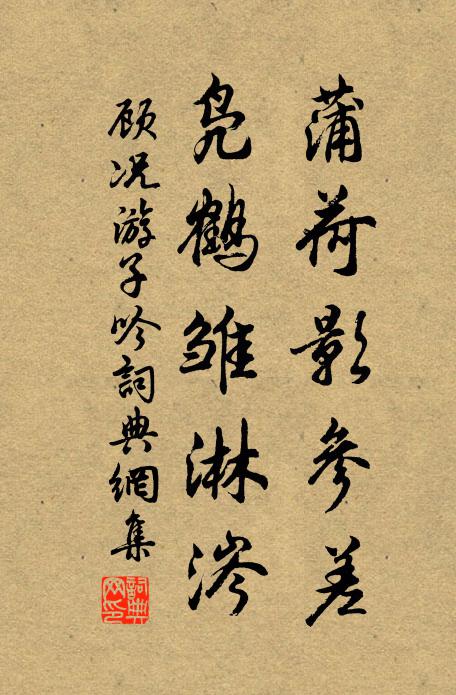 蒲荷影參差
凫鶴雏淋涔
顾况游子吟詞典網集
詞典网印